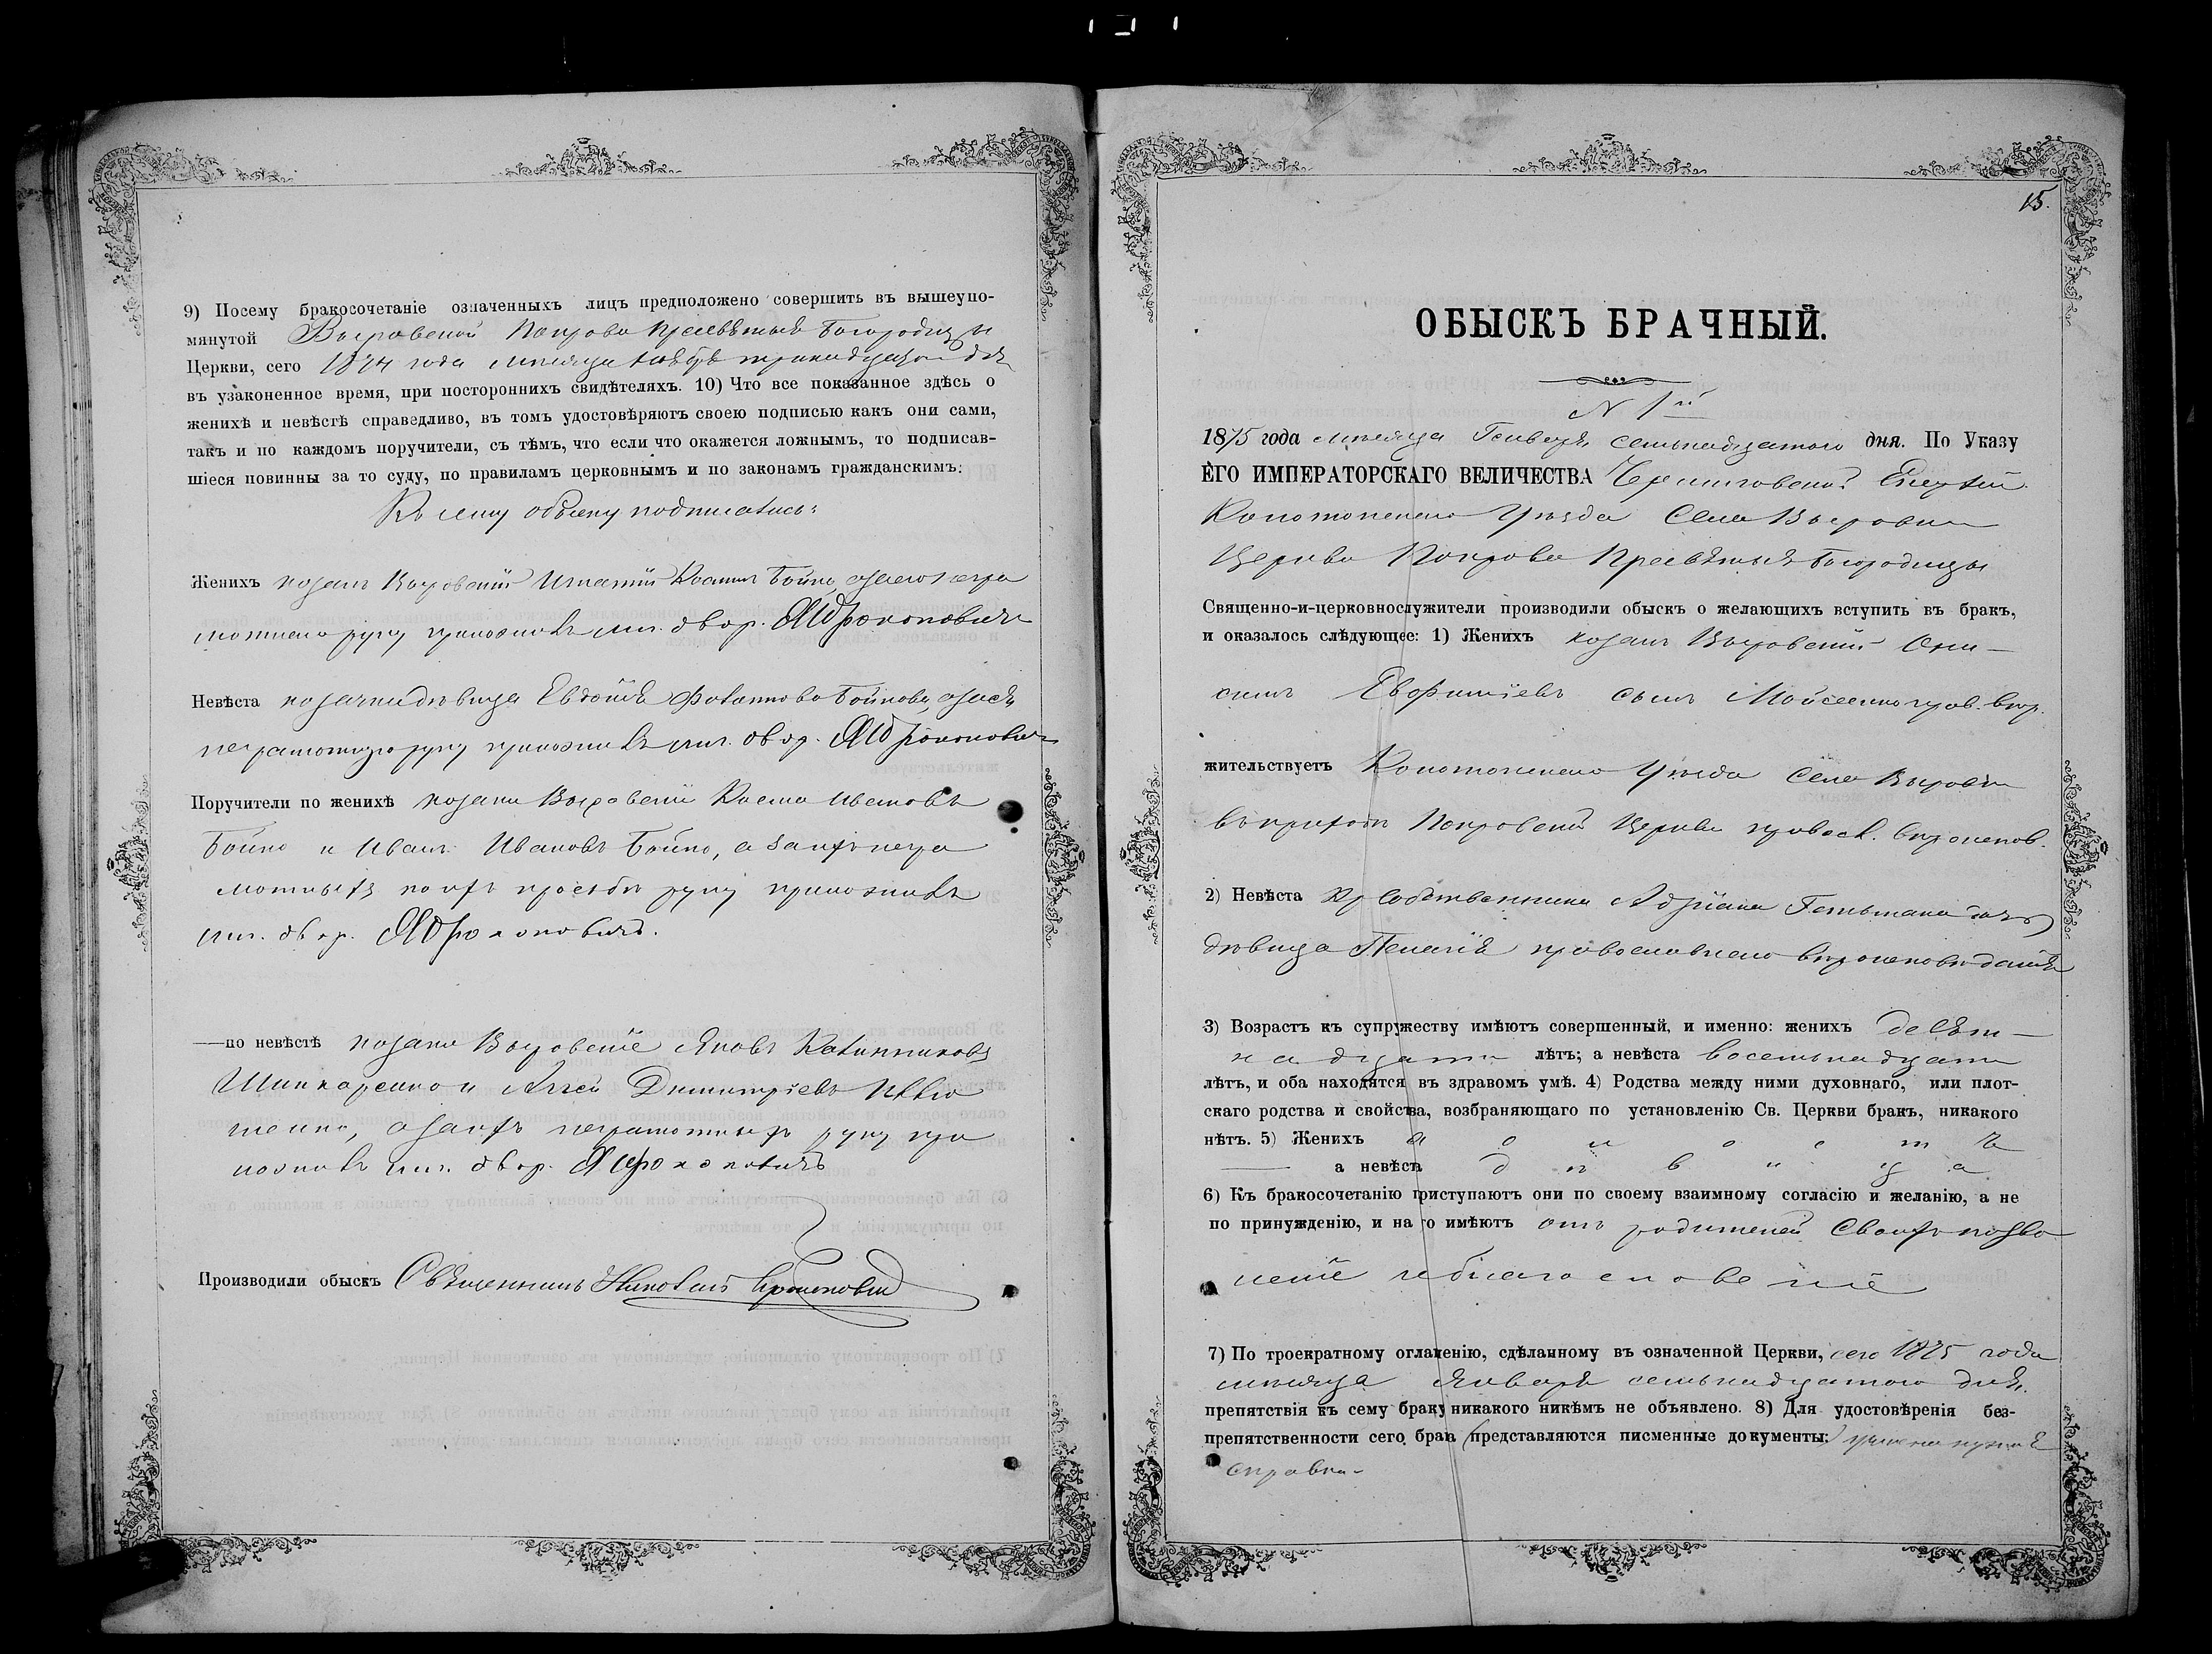 9) Посему бракосочетаніе означенныхъ лицъ предположено совершить въ вышеупо-
мянутой Выровской Покрова Пресвѣтыя Богородицы
Церкви, сего 1874 года мѣсяца дня
въ узаконенное время, при постороннихъ свидѣтеляхъ. 10) Что все показанное здѣсь о
женихѣ и невѣстѣ справедливо, въ томъ удостовѣряютъ своею подписью какъ они сами,
такъ и по каждомъ поручители, съ тѣмъ, что если что окажется ложнымъ, то подписав-
шіеся повинны за то суду, по правиламъ церковнымъ и по законамъ гражданскимъ:
Къ сему обыску подписались:
Женихъ козакъ Выровскій Игнатій Космин Бойко, а за его негра
мотнаго руку приложилъ двор.
Невѣста козачка дѣвица Евдокія Бойкова, а за сея
неграмотную руку приложилъ двор.
Поручители по женихѣ козаки Выровскіе Косма Ивановъ
Бойко и Иванъ Ивановъ Бойко, а за ихъ негра
мотныхъ по ихъ прозьбѣ руку приложилъ
двор.
—по невѣстѣ козаки Выровскіе Яковъ Калинниковъ
Шинкаренко и Алексѣй Димитріевъ
а за ихъ неграмотныхъ руку при
ложилъ двор.
Производили обыскъ Священникъ Николай
15.
ОБЫСКЪ БРАЧНЫЙ.
N 1й
1875 года мѣсяца Генваря семьнадцатого дня. По Указу
ЕГО ИМПЕРАТОРСКАГО ВЕЛИЧЕСТВА Черниговской Епархіи
Конотопскаго Уѣзда Села Выровки
Церкви Покрова Пресвѣтыя Богородицы
Священно-и-церковнослужители производили обыскъ о желающихъ вступить въ бракъ,
и оказалось слѣдующее: 1) Женихъ козакъ Выровскій Они-
симъ Евфиміевъ сынъ Мойсеенко прав. вѣр.
жительствуетъ Конотопскаго Уѣзда Села Выровки
въ приходѣ Покровской Церкви правосл. вѣроисповѣд.
2) Невѣста Кр собственника Адріана Гетьмана дочь
дѣвица Пелагія православнаго вѣроисповѣданія
3) Возрастъ къ супружеству имѣютъ совершенный, и именно: женихъ девѣт-
надцати лѣтъ; а невѣста восемьнадцати
лѣтъ, и оба находятся въ здравомъ умѣ. 4) Родства между ними духовнаго, или плот-
скаго родства и свойства, возбраняющаго по установленію Св. Церкви бракъ, никакого
нѣтъ. 5) Женихъ холостъ
— а невѣста дѣвица
6) Къ бракосочетанію приступаютъ они по своему взаимному согласію и желанію, а не
по принужденію, и на то имѣютъ отъ родителей своихъ позво
леніе и благословеніе
7) По троекратному оглашенію, сдѣланному въ означенной Церкви, сего 1875 года
мѣсяца Января семьнадцатого дня
препятствія къ сему браку никакого никѣмъ не объявлено. 8) Для удостовѣренія без-
препятственности сего брака представляются писменные документы:
справка